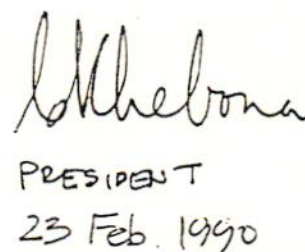 PRESIDENT
23 Feb. 1990